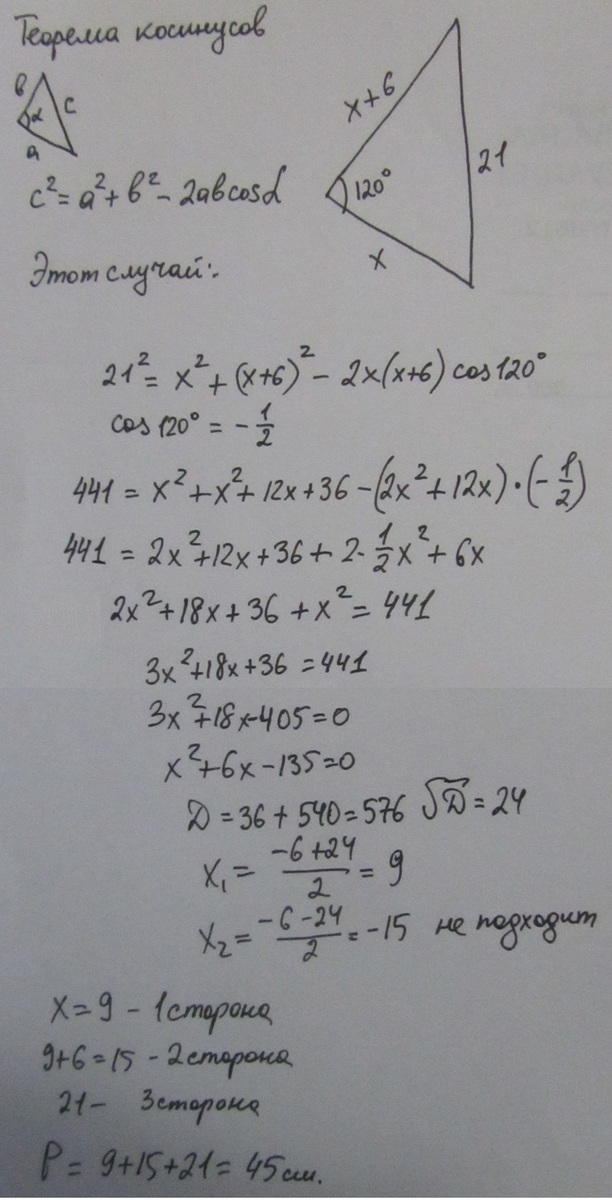 Теорема косинусов
в
α
c
a
c² = a² + в² - 2ab cosα
x+6
120°
21
x
Этот случай:
21² = x² + (x+6)² - 2x(x+6) cos120°
cos 120° = -1/2
441 = x² + x² + 12x + 36 - (2x² + 12x) · (-1/2)
441 = 2x² + 12x + 36 + 2·1/2x² + 6x
2x² + 18x + 36 + x² = 441
3x² + 18x + 36 = 441
3x² + 18x - 405 = 0
x² + 6x - 135 = 0
D = 36 + 540 = 576 √D = 24
x₁ = (-6+24)/2 = 9
x₂ = (-6-24)/2 = -15 не подходит
x = 9 - 1 сторона
9+6 = 15 - 2 сторона
21 - 3 сторона
P = 9+15+21 = 45 см.